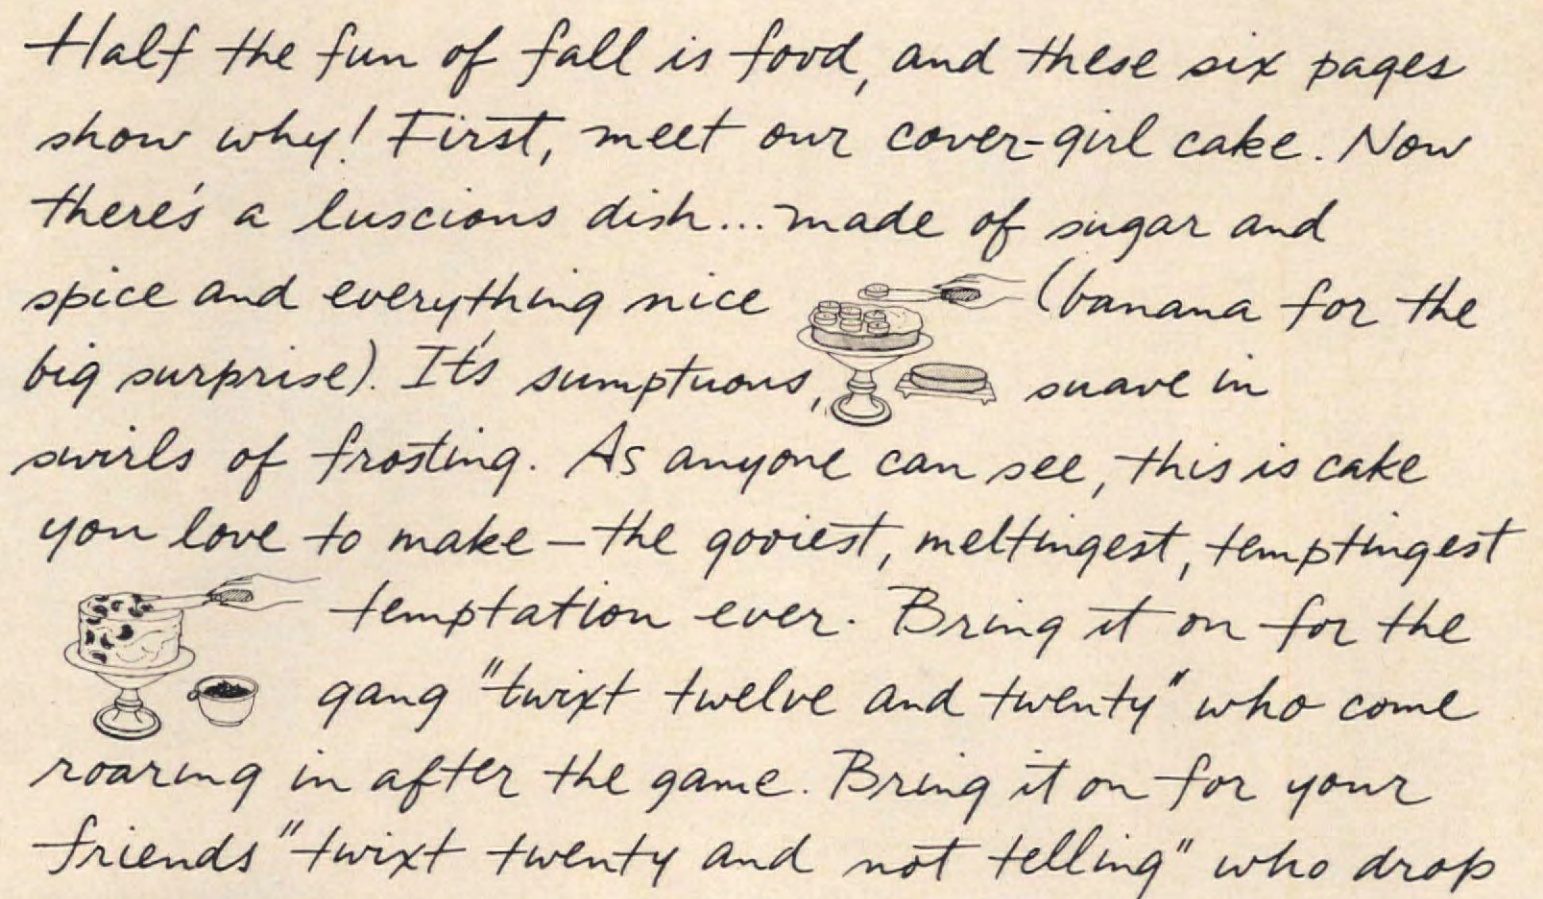 Half the fun of fall is food, and these six pages
show why! First, meet our cover-girl cake. Now
there's a luscious dish...made of sugar and
spice and everything nice (banana for the
big surprise). It's sumptuous, suave in
swirls of frosting. As anyone can see, this is cake
you love to make—the gooiest, meltingest, temptingest
temptation ever. Bring it on for the
gang "twixt twelve and twenty" who come
roaring in after the game. Bring it on for your
friends "twixt twenty and not telling" who drop